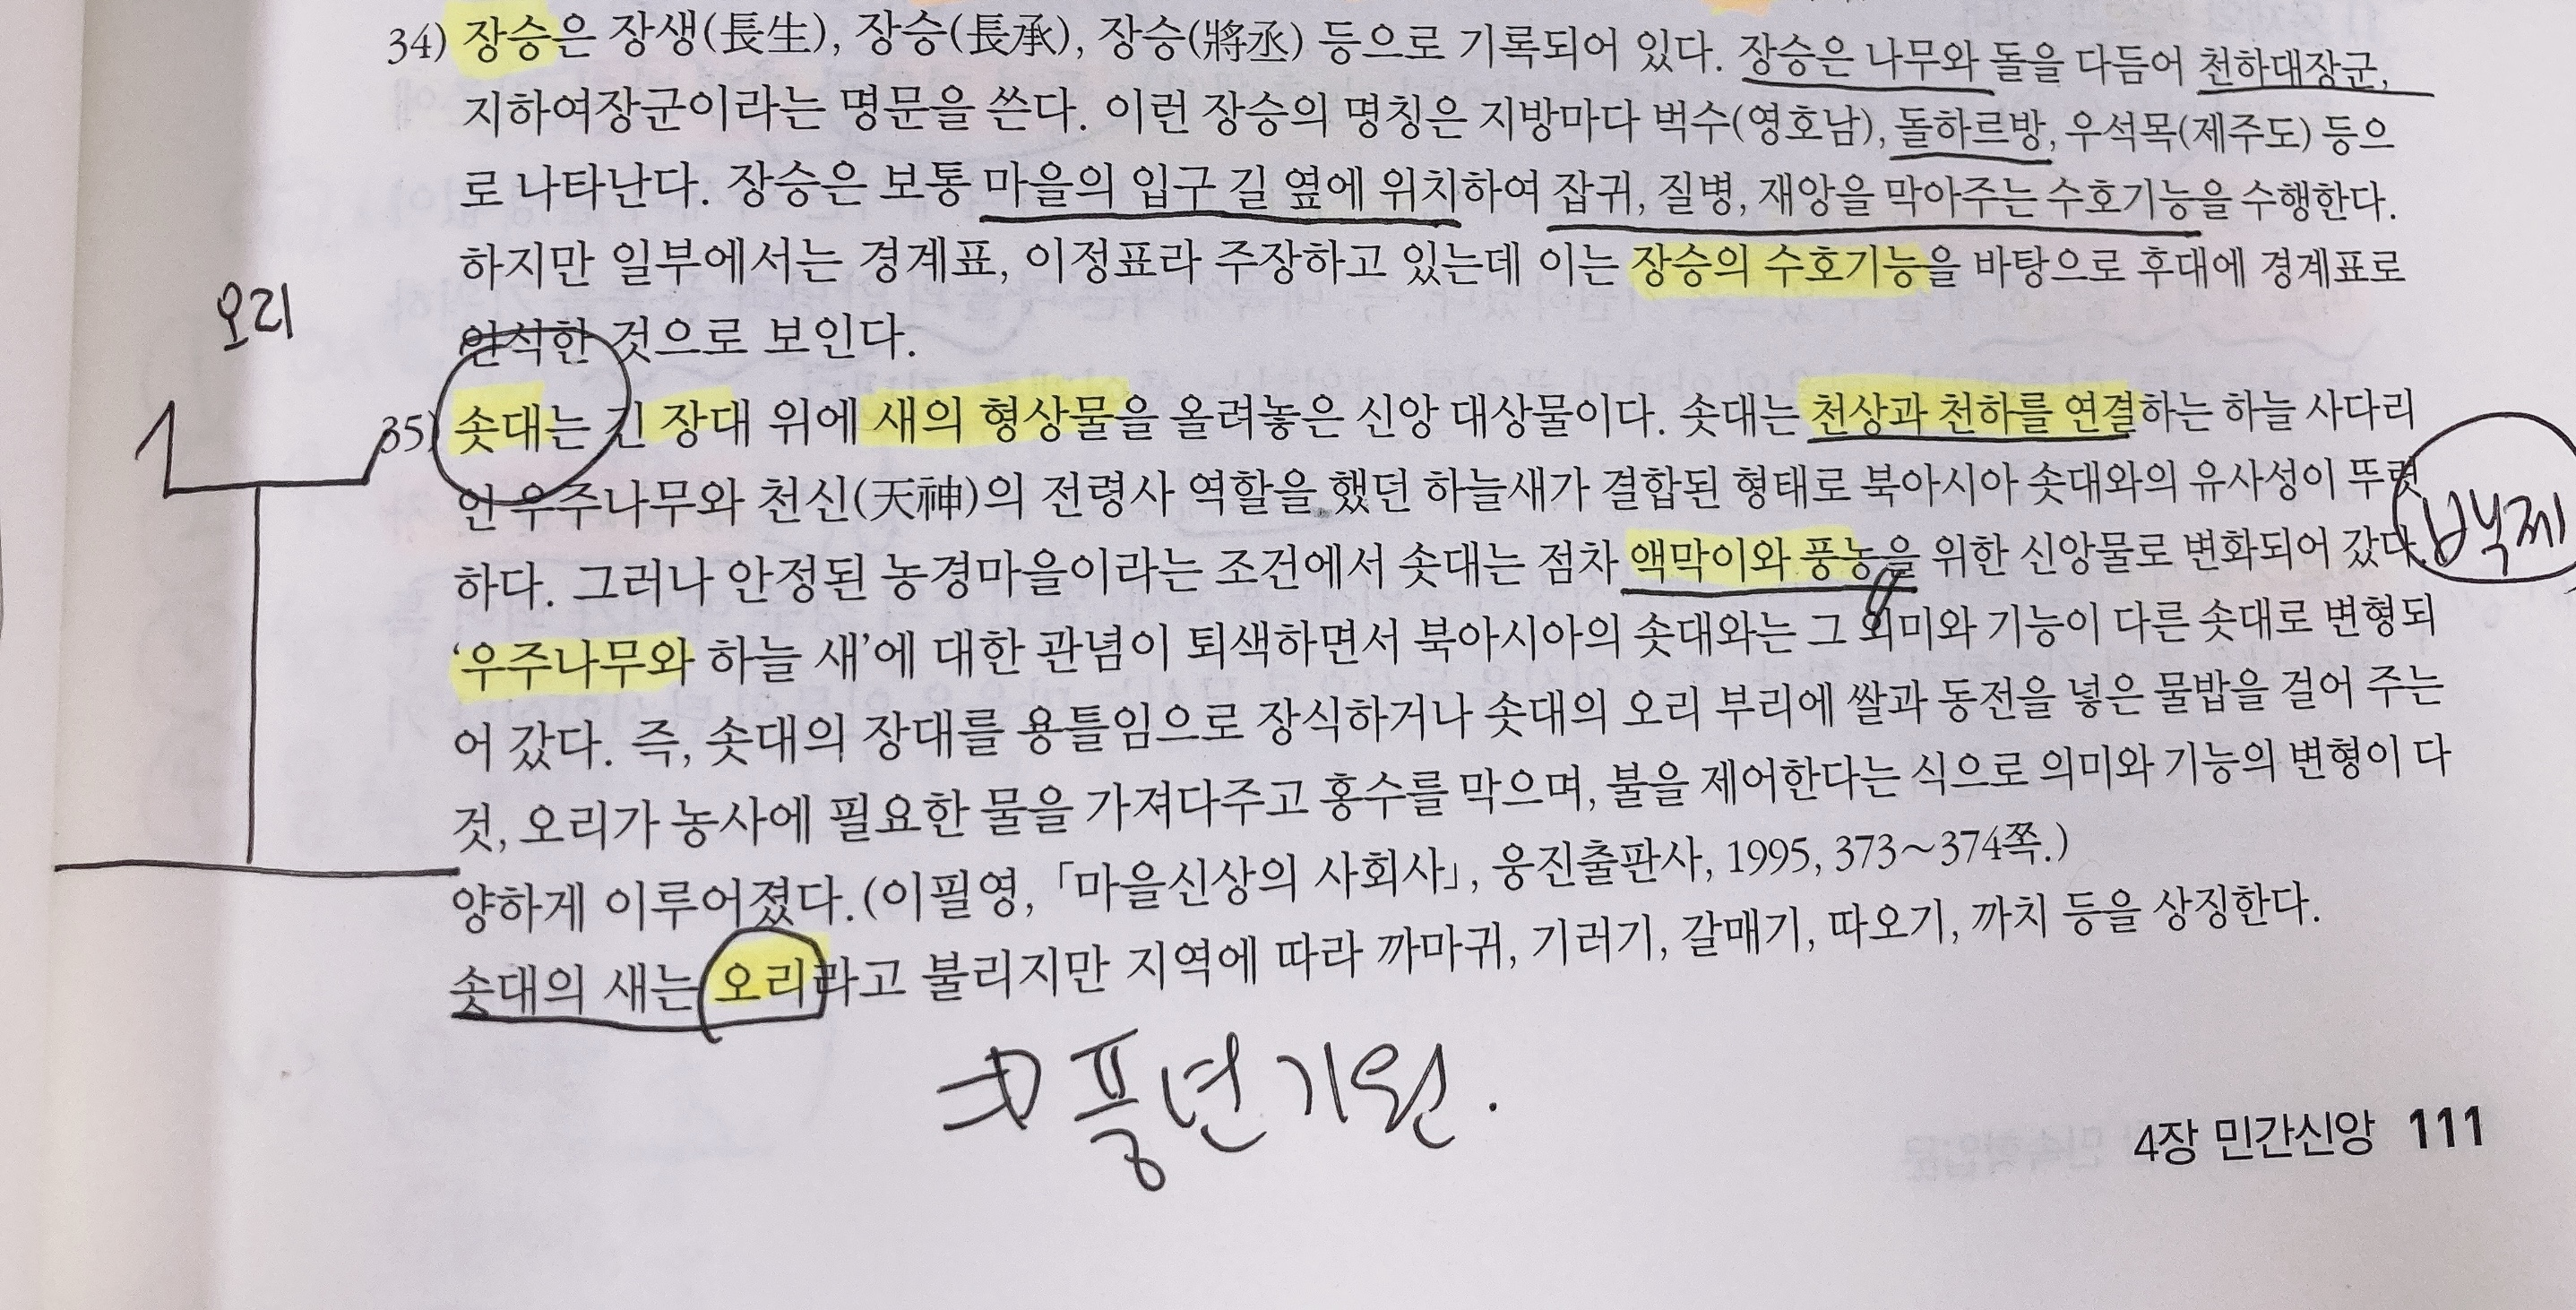 34) 장승은 장생(長生), 장승(長承), 장승(將丞) 등으로 기록되어 있다. 장승은 나무와 돌을 다듬어 천하대장군,
지하여장군이라는 명문을 쓴다. 이런 장승의 명칭은 지방마다 벅수(영호남), 돌하르방, 우석목(제주도) 등으
로 나타난다. 장승은 보통 마을의 입구 길 옆에 위치하여 잡귀, 질병, 재앙을 막아주는 수호기능을 수행한다.
하지만 일부에서는 경계표, 이정표라 주장하고 있는데 이는 장승의 수호기능을 바탕으로 후대에 경계표로
인식한 것으로 보인다.
오리
35) 솟대는 긴 장대 위에 새의 형상물을 올려놓은 신앙 대상물이다. 솟대는 천상과 천하를 연결하는 하늘 사다리
인 우주나무와 천신(天神)의 전령사 역할을 했던 하늘새가 결합된 형태로 북아시아 솟대와의 유사성이 뚜렷
백제
하다. 그러나 안정된 농경마을이라는 조건에서 솟대는 점차 액막이와 풍농을 위한 신앙물로 변화되어 갔다.
‘우주나무와 하늘 새’에 대한 관념이 퇴색하면서 북아시아의 솟대와는 그 의미와 기능이 다른 솟대로 변형되
어 갔다. 즉, 솟대의 장대를 용틀임으로 장식하거나 솟대의 오리 부리에 쌀과 동전을 넣은 물밥을 걸어 주는
것, 오리가 농사에 필요한 물을 가져다주고 홍수를 막으며, 불을 제어한다는 식으로 의미와 기능의 변형이 다
양하게 이루어졌다.(이필영, 「마을신상의 사회사」, 웅진출판사, 1995, 373~374쪽.)
솟대의 새는 오리라고 불리지만 지역에 따라 까마귀, 기러기, 갈매기, 따오기, 까치 등을 상징한다.
⇒ 풍년기원.
4장 민간신앙 111